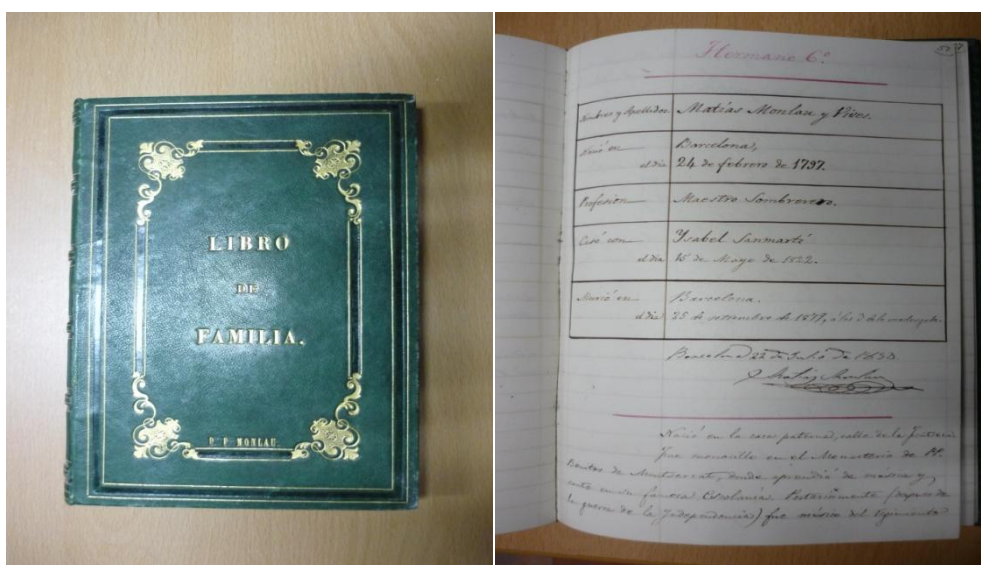 LIBRO
DE
FAMILIA.
P. F. MONLAU
Hermano 6.º
Nombres y Apellidos Matías Monlau y Vives.
Nació en Barcelona,
el dia 24 de febrero de 1797.
Profesion Maestro Sombrerero.
Casó con Ysabel Sanmartí
el dia 15 de Mayo de 1822.
Murió en Barcelona.
el dia 25 de setiembre de 187, á las 3 de la madrugada.
Barcelona 22 de Julio de
Matias Monlau
Nació en la casa paterna, calle de la
Fue monacillo en el Monasterio de PP.
Benitos de Montserrat, donde aprendió de música y
canto en su famosa Escolanía. Posteriormente (despues de
la guerra de la Independencia) fue músico del regimiento